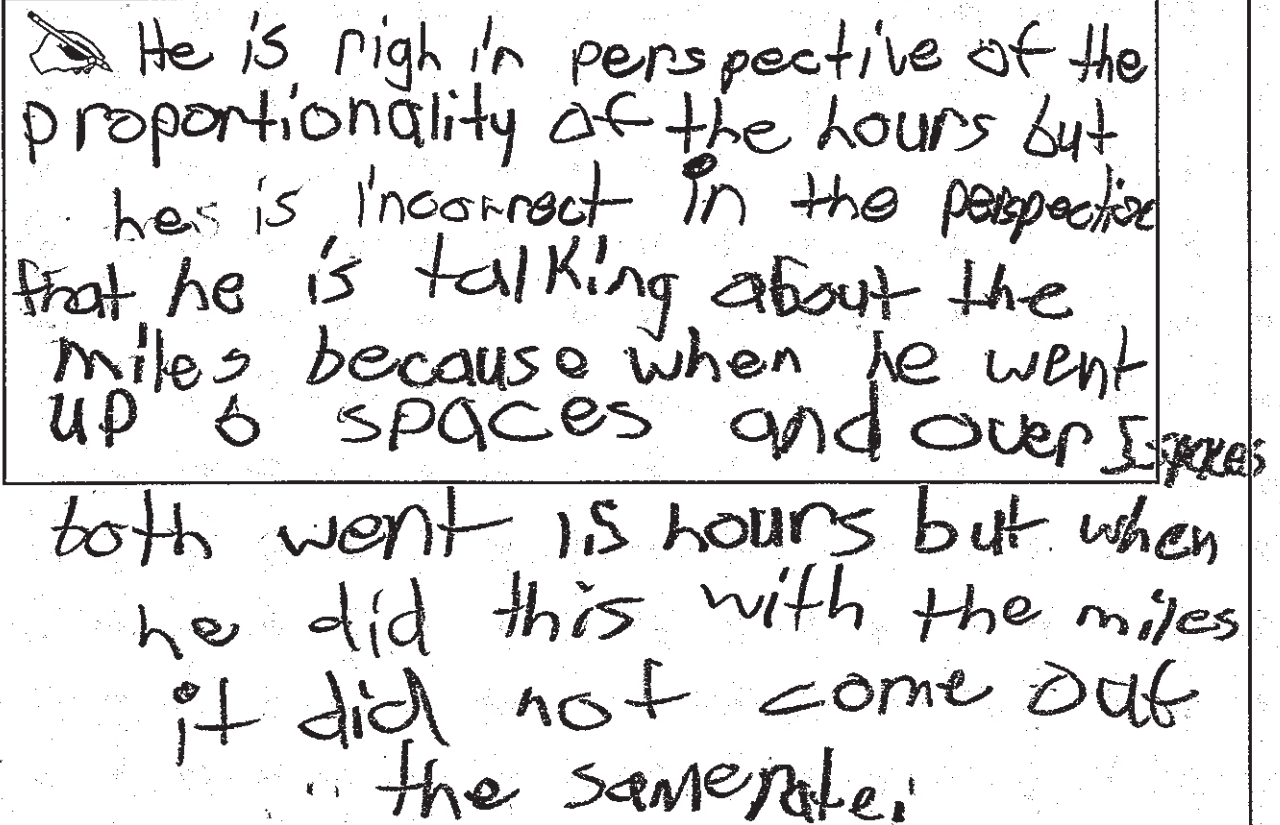 He is righ in perspective of the
proportionality of the hours but
he is incorrect in the perspective
that he is talking about the
miles because when he went
up 6 spaces and over I spaces
both went is hours but when
he did this with the miles
it did not come out
the same rate.